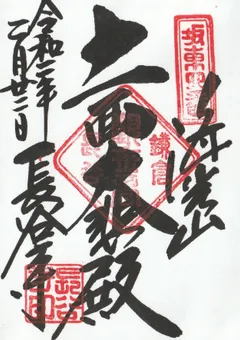 坂東四番
海光山
十一面大悲殿
鎌倉
令和二年
二月廿二日
長谷寺